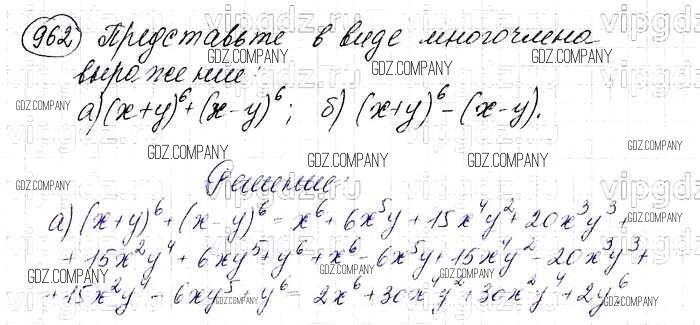 962 Представьте в виде многочлена
выражение:
а) (x+y)^6+(x-y)^6; б) (x+y)^6-(x-y).
Решение:
а) (x+y)^6+(x-y)^6=x^6+6x^5y+15x^4y^2+20x^3y^3+
+15x^2y^4+6xy^5+y^6+x^6-6x^5y+15x^4y^2-20x^3y^3+
+15x^2y^4-6xy^5+y^6=2x^6+30x^4y^2+30x^2y^4+2y^6
vipgdz.com
GDZ.COMPANY